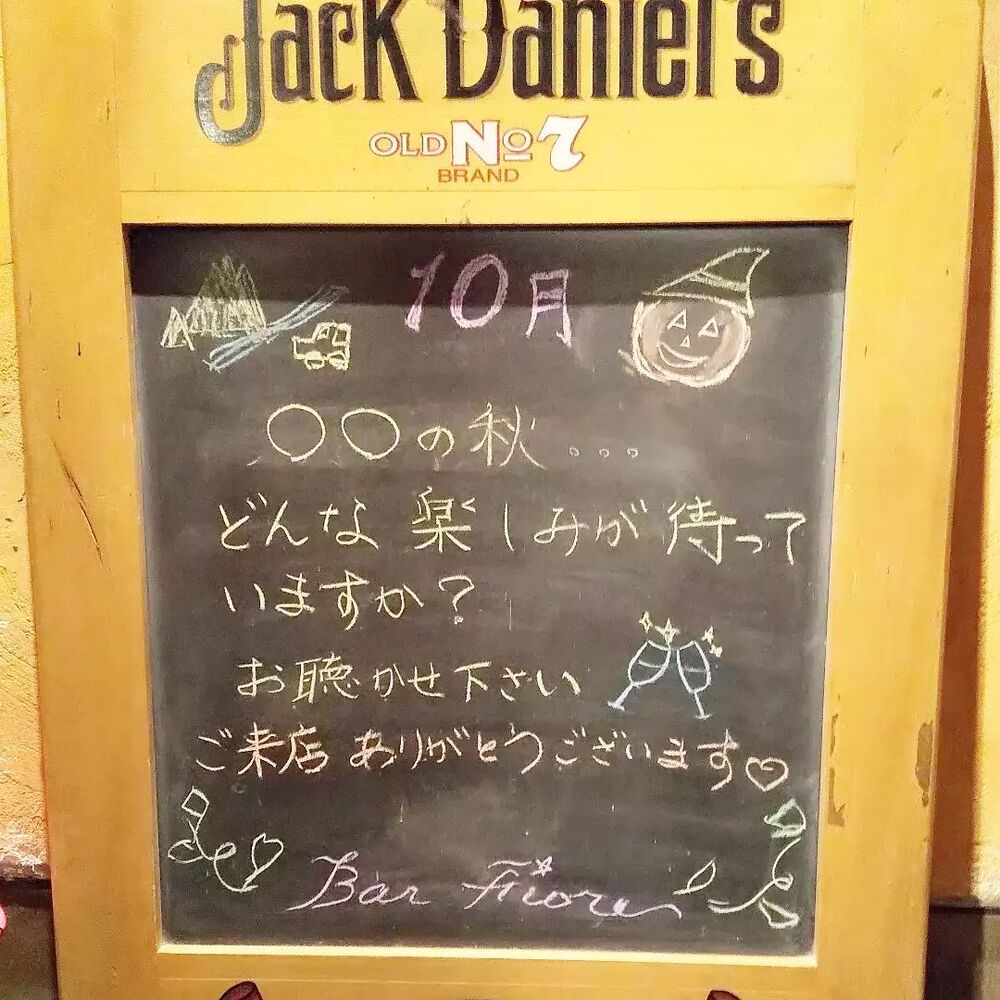 Jack Daniel's
OLD No 7
BRAND
10月
〇〇の秋...
どんな楽しみが待って
いますか?
お聴かせ下さい
ご来店ありがとうございます♡
Bar Fiore